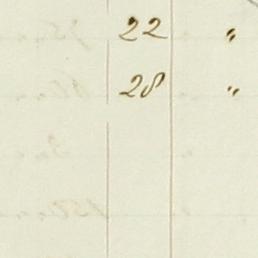 22 "
28 "